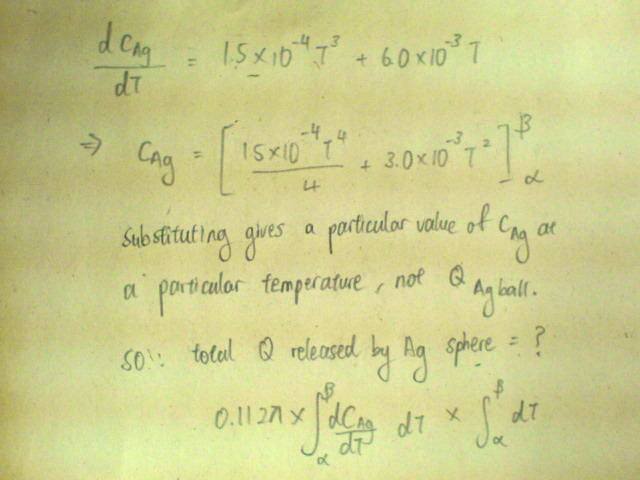 dC_Ag/dT = 1.5×10^-4 T^3 + 6.0×10^-3 T
⇒ C_Ag = [ 1.5×10^-4 T^4 / 4 + 3.0×10^-3 T^2 ]_α^β
substituting gives a particular value of C_Ag at
a particular temperature, not Q Ag ball.
SO∵ total Q released by Ag sphere = ?
0.112π × ∫_α^β dC_Ag/dT dT × ∫_α^β dT